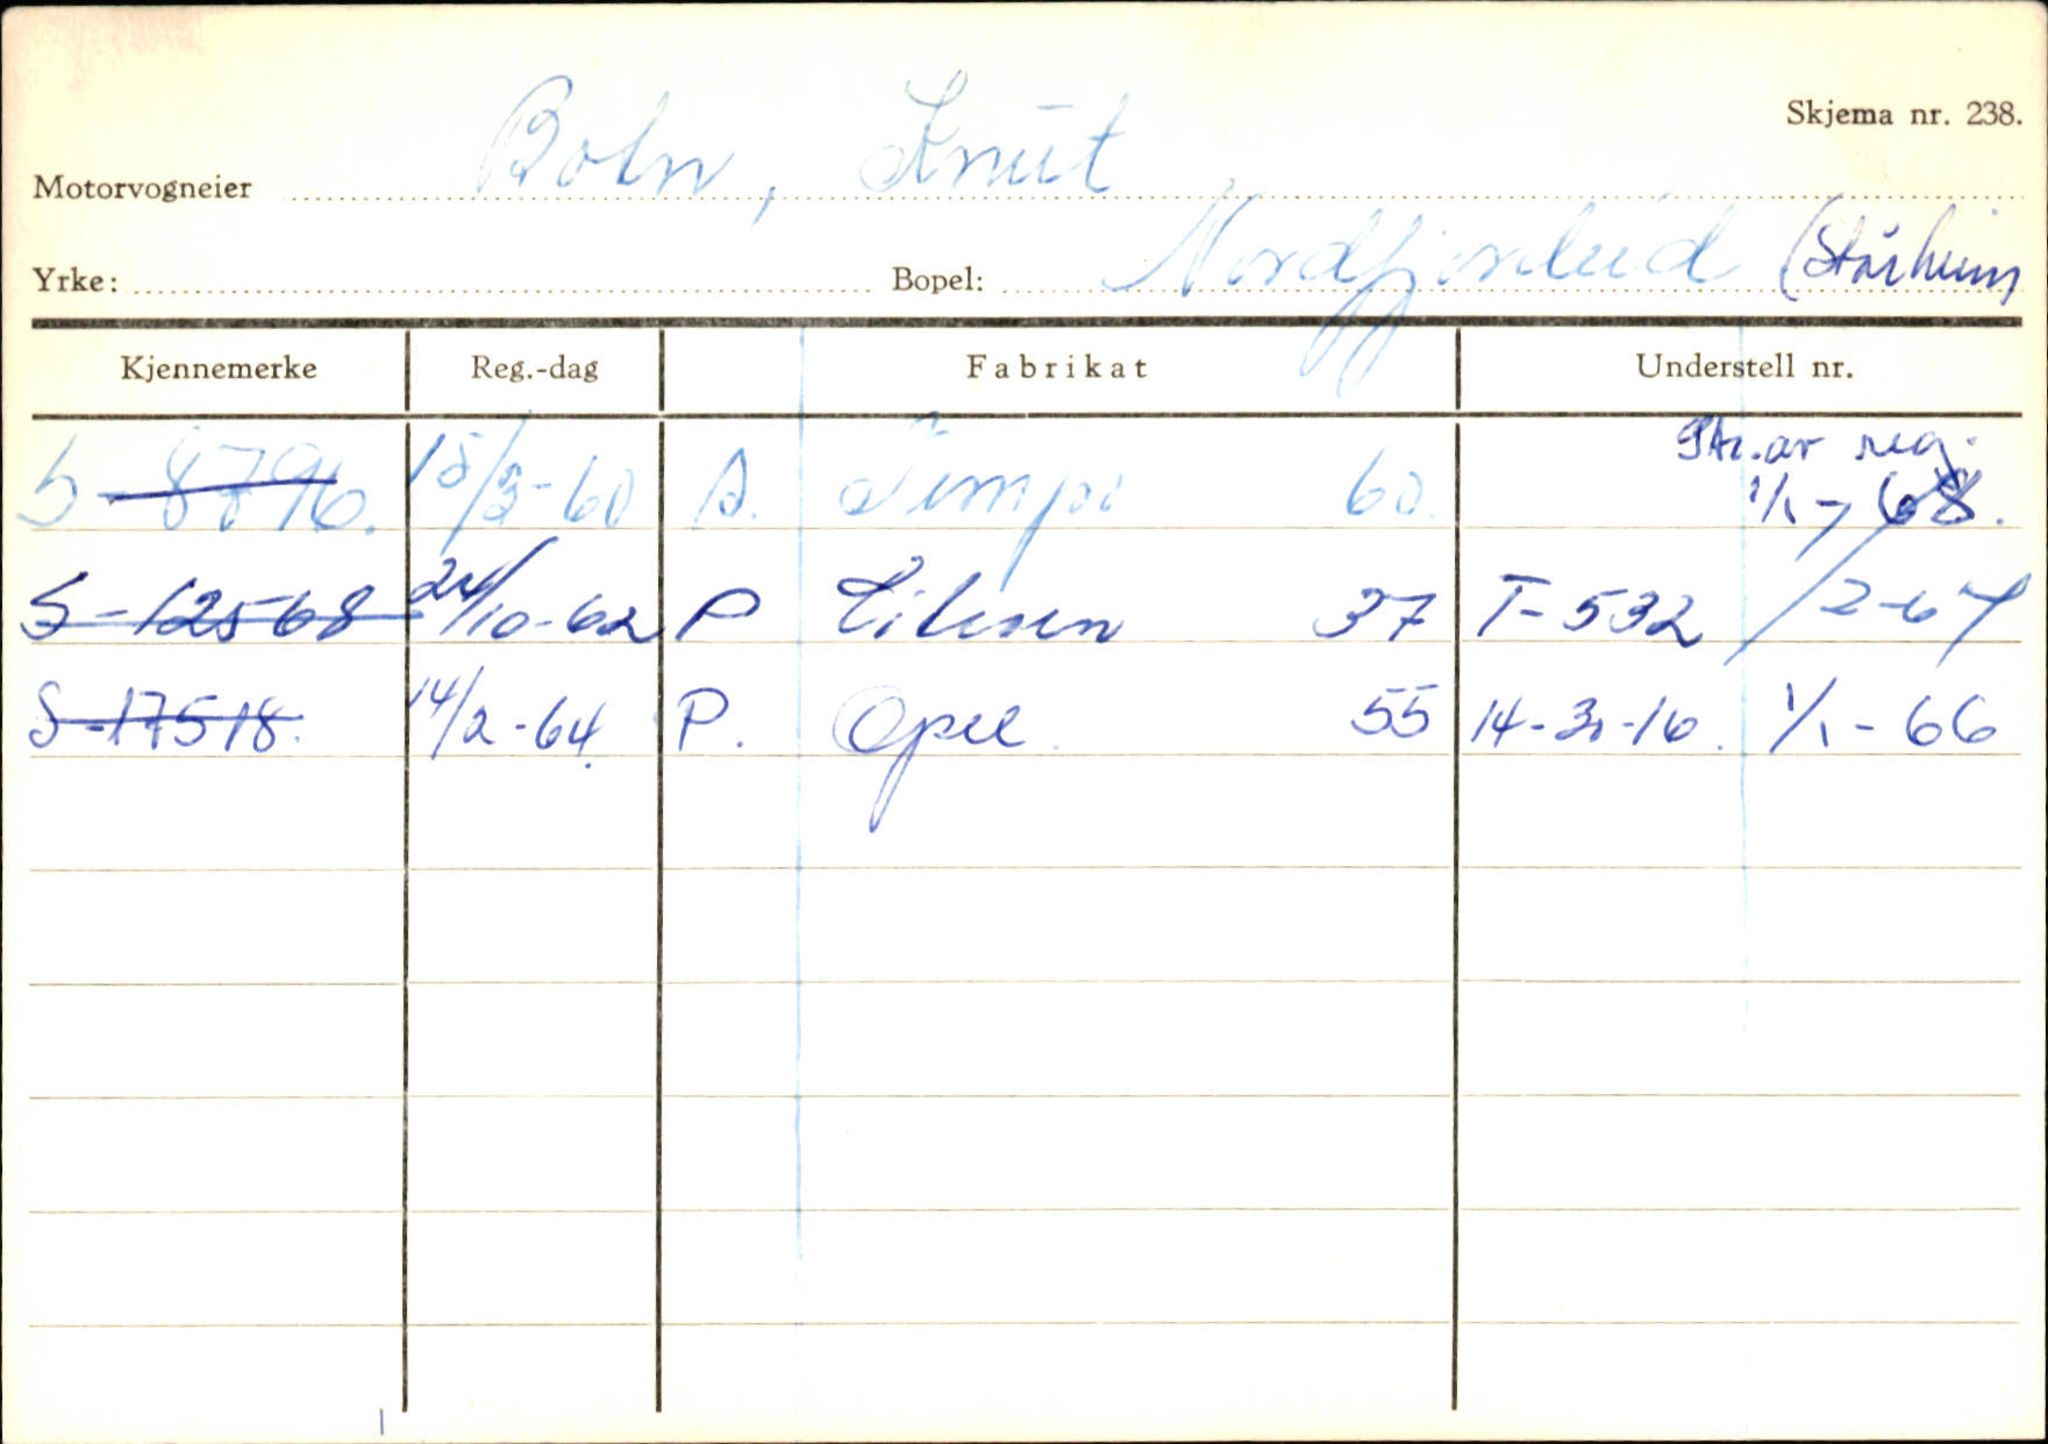 Skjema nr. 238.
Motorvogneier Bohn, Knut
Yrke: Bopel: Nordfjordeid (Stårheim
Kjennemerke Reg.-dag Fabrikat Understell nr.
S-8796. 15/3-60 A. Tempo 60 av reg. 1/1-68.
S-12568 24/10-62 P 37 T-532 /2-67
S-17518. 14/2-64. P. Opel 55 1/1-66